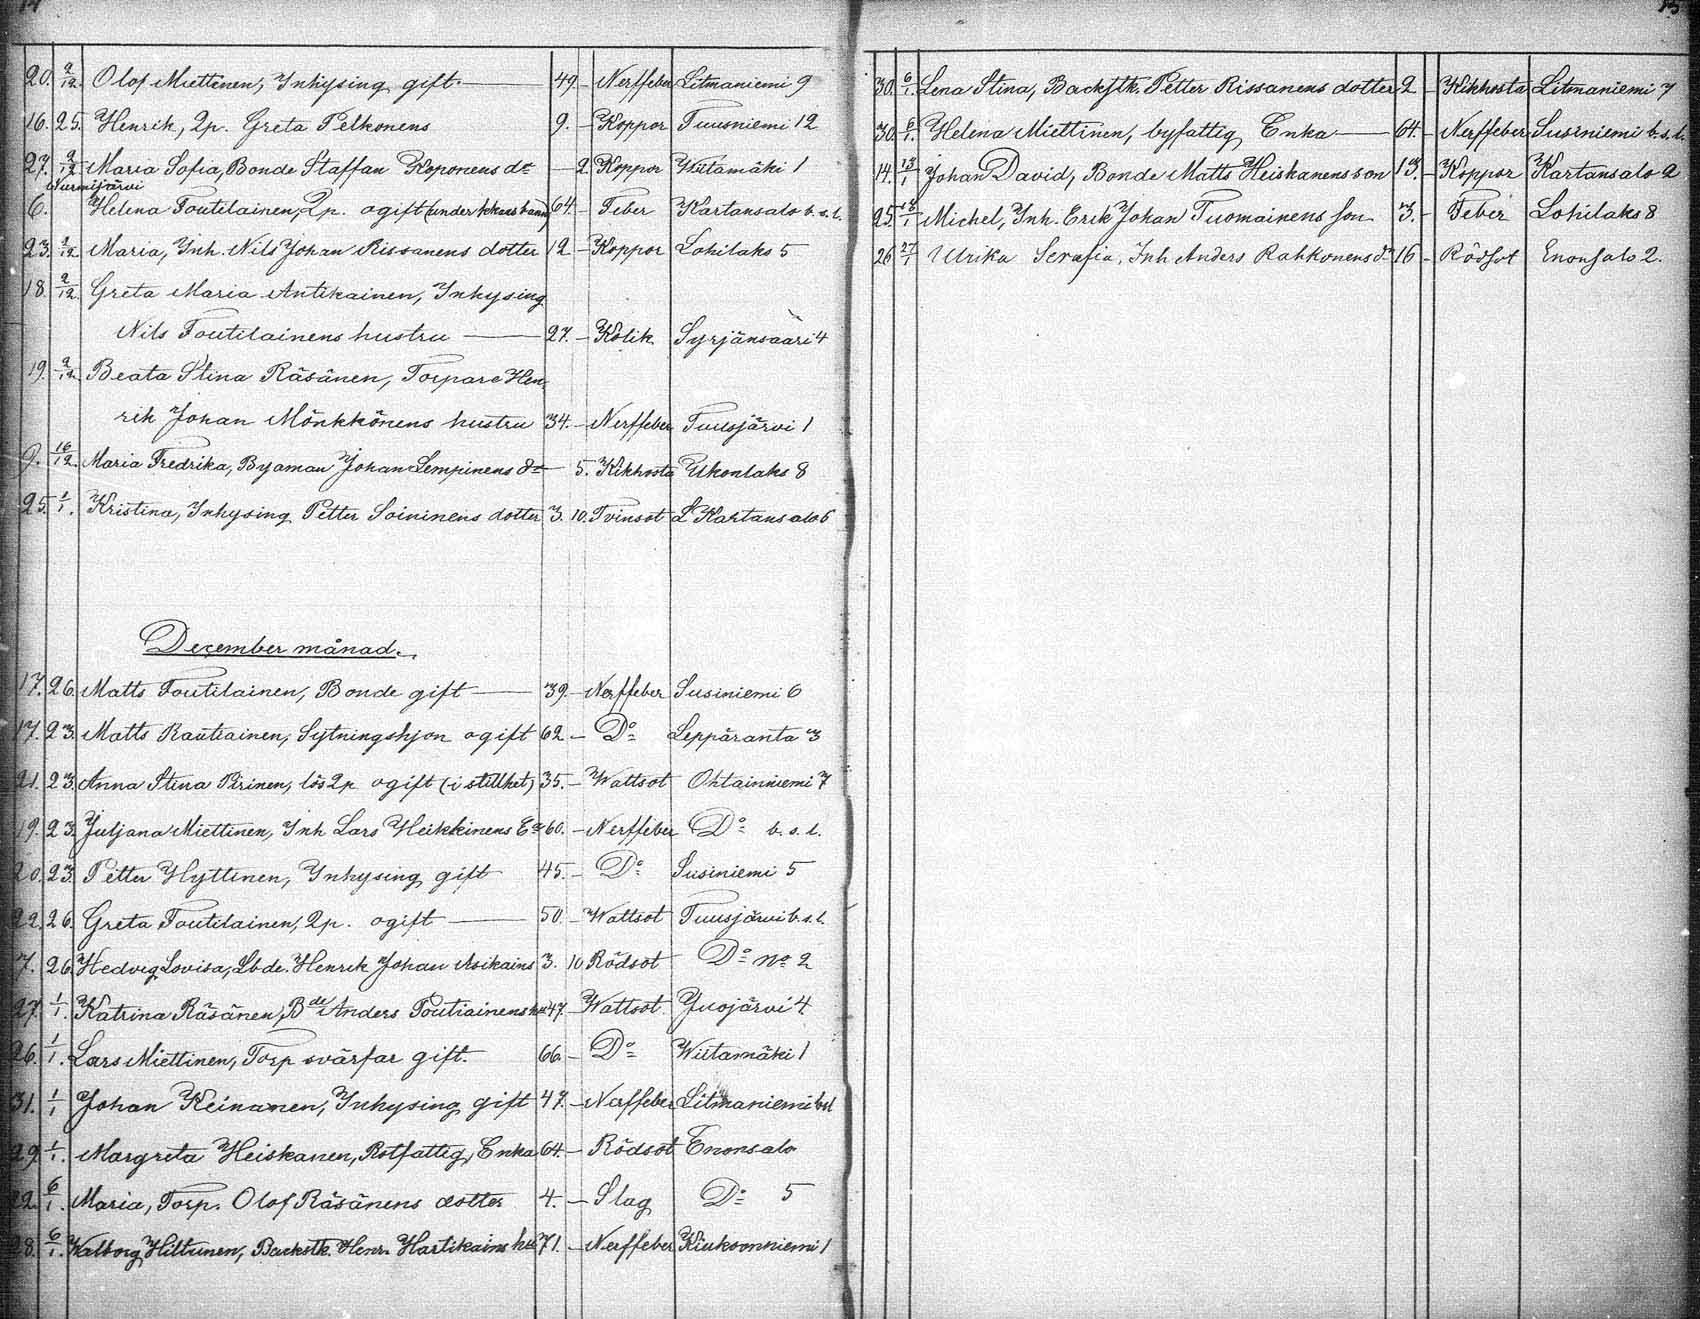 14
20. 2/12. Olof Miettinen, Inhysing gift — 49 - Nerffeber Litmaniemi 9
16. 25. Henrik, Qp. Greta Pelkonens 9. - Koppor Tuusniemi 12
27. 2/12 Maria Sofia, Bonde Staffan Koponens dr — 2. Koppor Wiitamäki 1
Nurmijärvi
6. Helena Toutilainen, Qp. ogift 64. - Feber Kartansalo b. s. l.
23. 2/12 Maria, Inh. Nils Johan Rissanens dotter 12 - Koppor Lohilaks 5
18. 2/12. Greta Maria Antikainen, Inhysing
Nils Toutilainens hustru — 27. - Kolik Syrjänsaari 4
19. 2/12 Beata Stina Räsänen, Torpare Hen-
rik Johan Mönkkönens hustru 34. - Nerffeber Tuusjärvi 1
9. 16/12. Maria Fredrika, Byaman Johan Lempinens dr — 5. Kikhosta Ukonlaks 8
25. 1/1. Kristina, Inhysing Petter Soininens dotter 3. 10. Tvinsot Kartansalo 6
December månad.
17. 26. Matts Toutilainen, Bonde gift — 39. - Nerffeber Susiniemi 6
17. 23. Matts Rautiainen, Sytningshjon ogift 62 - Do Leppäranta 3
21. 23. Anna Stina Pirinen, lös Qp ogift (i stillhet) 35. - Wattsot Ohtainniemi 7
19. 23. Juljana Miettinen, Inh Lars Heikkinens Ea 60. - Nerffeber Do b. s. l.
20. 23. Petter Hyttinen, Inhysing gift 45. - Do Susiniemi 5
22. 26. Greta Toutilainen, Qp. ogift — 50. - Wattsot Tuusjärvi b. s. l.
7. 26. Hedvig Lovisa, Lbde. Henrik Johan Asikains 3. 10 Rödsot Do No 2
27. 1/1. Katrina Räsänen, Bde Anders Poutiainens hu 47. Wattsot Juojärvi 4
26. 1/1. Lars Miettinen, Torp svärfar gift. 66. - Do Wiitamäki 1
31. 1/1 Johan Keinanen, Inhysing gift 47. - Nerffeber Litmaniemi bsl
29. 1/1. Margreta Heiskanen, Rotfattig, Enka 64. - Rödsot Enonsalo
22. 6/1. Maria, Torp. Olof Räsänens dotter 4. - Slag Do 5
28. 6/1. Walborg Hiltunen, Backstk. Henr. Hartikains hu 71. - Nerffeber Kiuksonniemi 1
15
30. 6/1. Lena Stina, Backstk. Petter Rissanens dotter 2 - Kikhosta Litmaniemi 7
30. 6/1. Helena Miettinen, byfattig Enka — 64. - Nerffeber Susiniemi b. s. l.
14. 13/1 Johan David, Bonde Matts Heiskanens son 13. - Koppor Kartansalo 2
25. 13/1 Michel, Inh. Erik Johan Tuomainens son 3. - Feber Lohilaks 8
26 27/1 Ulrika Serafia, Inh Anders Rahkonens dr 16 - Rödsot Enonsalo 2.